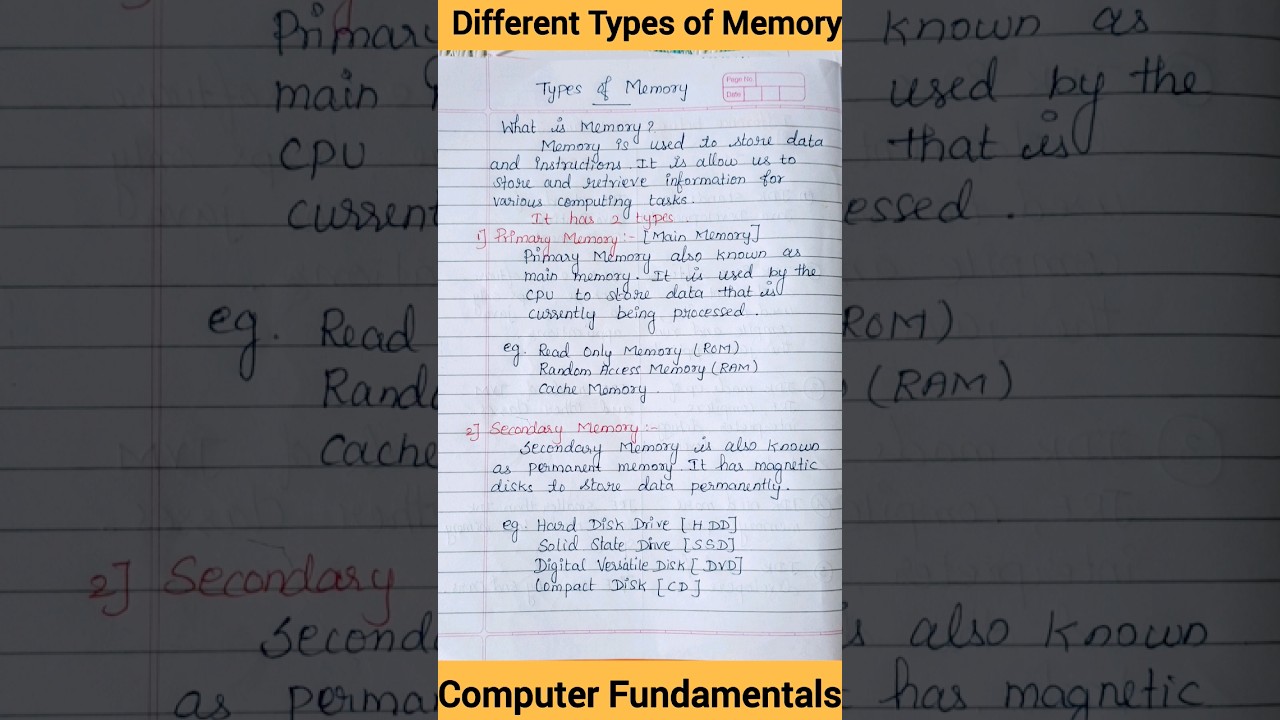 Different Types of Memory
Types of Memory
Page No.
Date
What is Memory?
Memory is used to store data
and instructions. It is allow us to
store and retrieve information for
various computing tasks.
It has 2 types.
1] Primary Memory :- [Main Memory]
Primary Memory also known as
main memory. It is used by the
CPU to store data that is
currently being processed.
eg. Read Only Memory (ROM)
Random Access Memory (RAM)
Cache Memory.
2] Secondary Memory :-
Secondary Memory is also known
as permanent memory. It has magnetic
disks to store data permanently.
eg. Hard Disk Drive [HDD]
Solid State Drive [SSD]
Digital Versatile Disk [DVD]
Compact Disk [CD]
Computer Fundamentals
Primary
known as
main
used by the
CPU
that is
current
essed.
eg. Read
ROM)
Rando
(RAM)
Cache
2] Secondary
Seconda
is also known
as perma
has magnetic